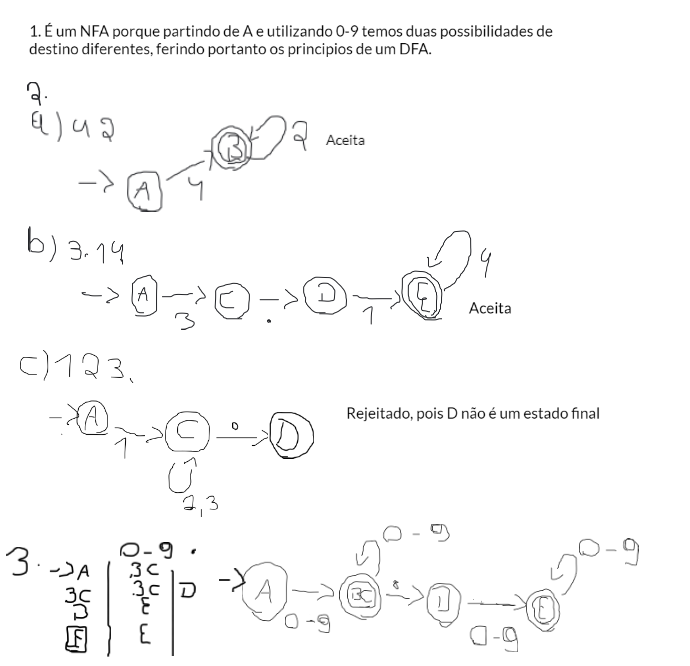 1. É um NFA porque partindo de A e utilizando 0-9 temos duas possibilidades de
destino diferentes, ferindo portanto os principios de um DFA.
2.
a) 42
B 2 Aceita
-> A 4
b) 3.14
4
-> A C D E
3 . 1
Aceita
c) 123.
-> A C . D
1
2,3
Rejeitado, pois D não é um estado final
3.
0-9 .
-> A BC
BC BC D
D E
E E
0-9 0-9
-> A BC . D E
0-9 0-9